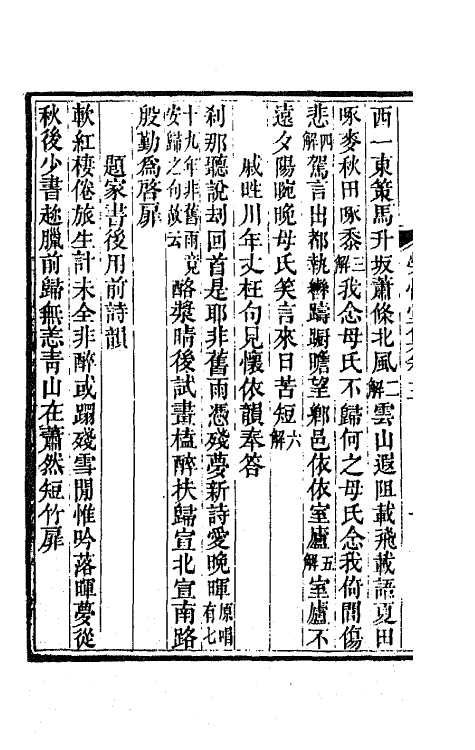 西一東策馬升坂蕭條北風二解雲山遐阻載飛載語夏田
啄麥秋田啄黍三解我念母氏不歸何之母氏念我倚閭傷
悲四解駕言出都執轡躊躕瞻望鄉邑依依室廬五解室廬不
遠夕陽晼晚母氏笑言來日苦短六解
戚甡川年丈枉句見懷依韻奉答
刹那聽說刧回首是耶非舊雨憑殘夢新詩愛晚暉原唱有七
十九年非舊雨竟安歸之句故云酪漿晴後試畫榼醉扶歸宣北宣南路
殷勤爲啓扉
題家書後用前詩韻
軟紅棲倦旅生計未全非醉或蹋殘雪閒惟吟落暉夢從
秋後少書趂臘前歸無恙青山在蕭然短竹扉